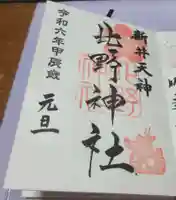 新井天神
北野神社
令和六年甲辰歳
元旦